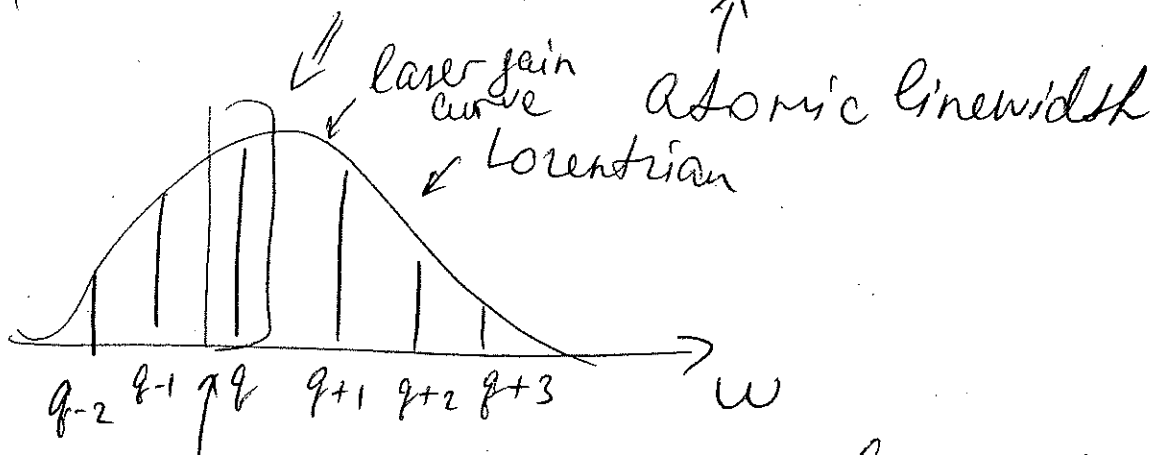 laser gain
curve
atomic linewidth
Lorentzian
q-2 q-1 q q+1 q+2 q+3 ω